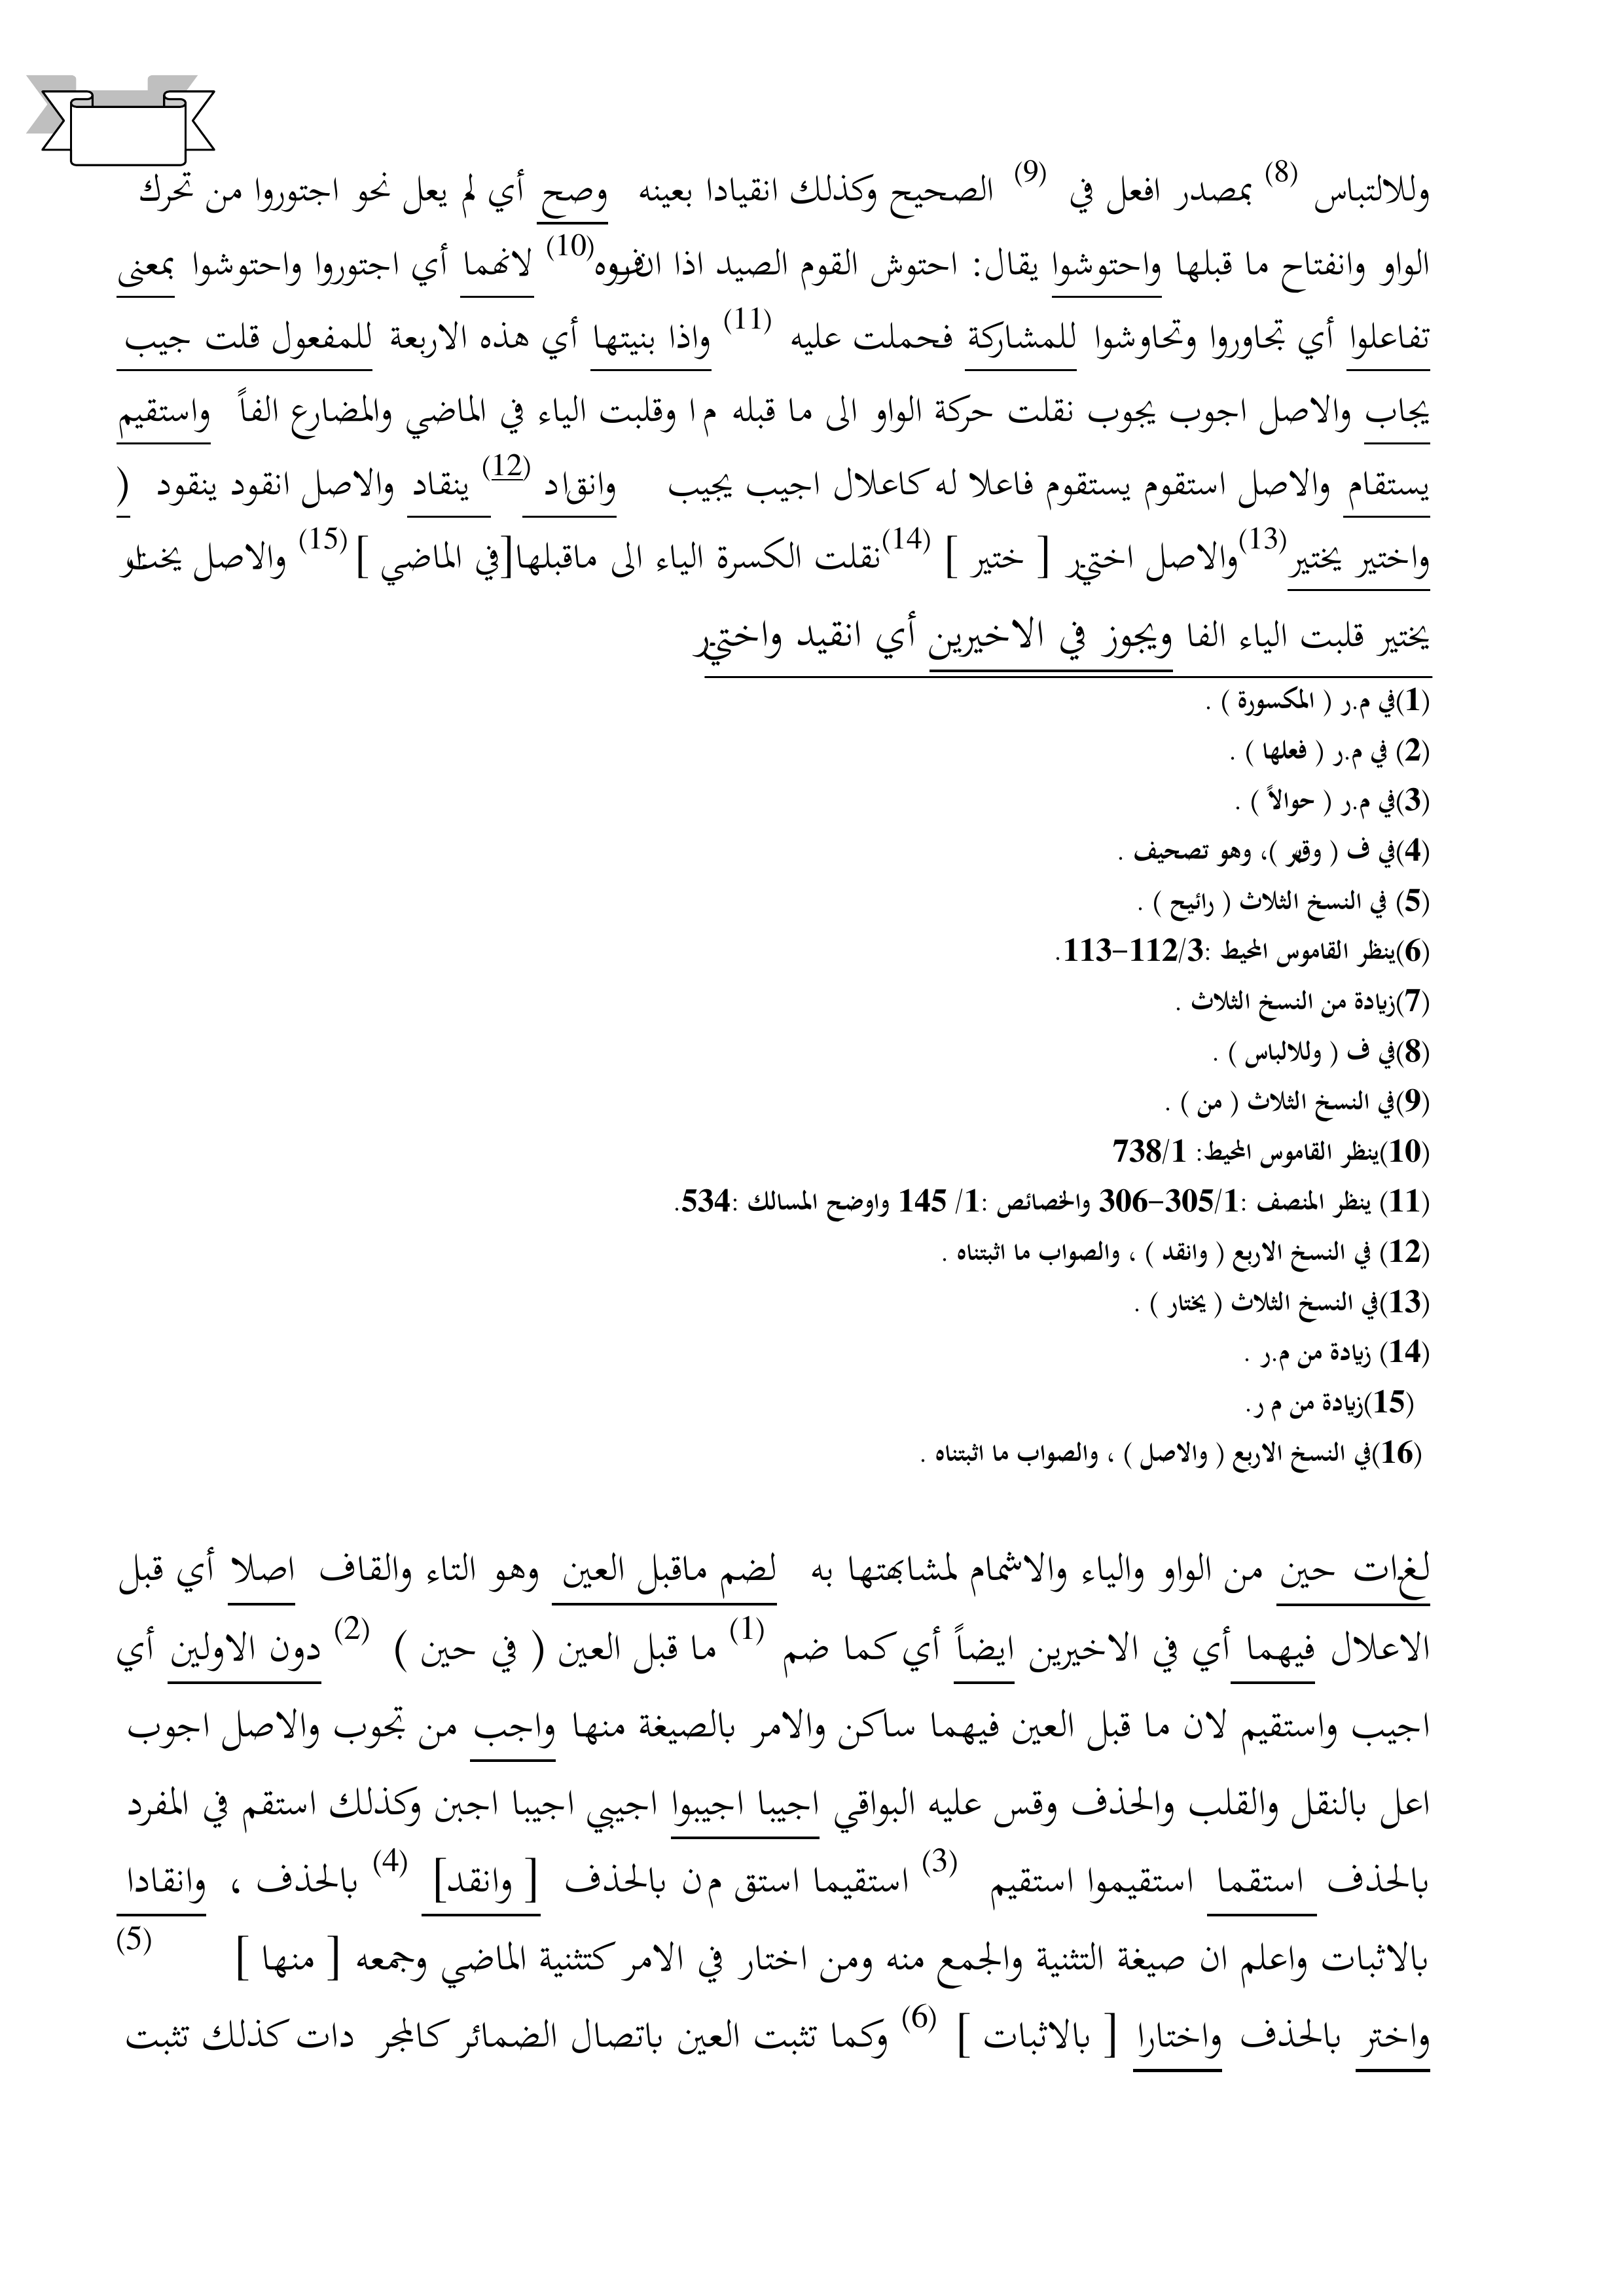 وللالتباس (8) بمصدر افعل في (9) الصحيح وكذلك انقيادا بعينه وصح أي لم يعل نحو اجتوروا من تحرك
الواو وانفتاح ما قبلها واحتوشوا يقال: احتوش القوم الصيد اذا انفروه(10) لانهما أي اجتوروا واحتوشوا بمعنى
تفاعلوا أي تجاوروا وتحاوشوا للمشاركة فحملت عليه (11) واذا بنيتها أي هذه الاربعة للمفعول قلت جيب
يجاب والاصل اجوب يجوب نقلت حركة الواو الى ما قبله م ا وقلبت الياء في الماضي والمضارع الفاً واستقيم
يستقام والاصل استقوم يستقوم فاعلا له كاعلال اجيب يجيب وانقاد (12) ينقاد والاصل انقود ينقود (
واختير يختير(13)والاصل اختير [ ختير ] (14)نقلت الكسرة الياء الى ماقبلها[في الماضي ](15) والاصل
يختير قلبت الياء الفا ويجوز في الاخيرين أي انقيد واختير
(1)في م.ر ( المكسورة ) .
(2) في م.ر ( فعلها ) .
(3)في م.ر ( حوالاً ) .
(4)في ف ( )، وهو تصحيف .
(5) في النسخ الثلاث ( رائيح ) .
(6)ينظر القاموس المحيط :112/3-113.
(7)زيادة من النسخ الثلاث .
(8)في ف ( وللالباس ) .
(9)في النسخ الثلاث ( من ) .
(10)ينظر القاموس المحيط: 738/1
(11) ينظر المنصف :305/1-306 والخصائص :1/ 145 واوضح المسالك :534.
(12) في النسخ الاربع ( وانقد ) ، والصواب ما اثبتناه .
(13)في النسخ الثلاث ( يختار ) .
(14) زيادة من م.ر .
(15)زيادة من م ر.
(16)في النسخ الاربع ( والاصل ) ، والصواب ما اثبتناه .
لغات حين من الواو والياء والاشمام لمشابهتها به لضم ماقبل العين وهو التاء والقاف اصلا أي قبل
الاعلال فيهما أي في الاخيرين ايضاً أي كما ضم (1) ما قبل العين ( في حين ) (2) دون الاولين أي
اجيب واستقيم لان ما قبل العين فيهما ساكن والامر بالصيغة منها واجب من تجوب والاصل اجوب
اعل بالنقل والقلب والحذف وقس عليه البواقي اجيبا اجيبوا اجيبي اجيبا اجبن وكذلك استقم في المفرد
بالحذف استقما استقيموا استقيم (3) استقيما استق م ن بالحذف [ وانقد] (4) بالحذف ، وانقادا
بالاثبات واعلم ان صيغة التثنية والجمع منه ومن اختار في الامر كتثنية الماضي وجمعه [ منها ] (5)
واختر بالحذف واختارا [ بالاثبات ] (6) وكما تثبت العين باتصال الضمائر كالمجر دات كذلك تثبت